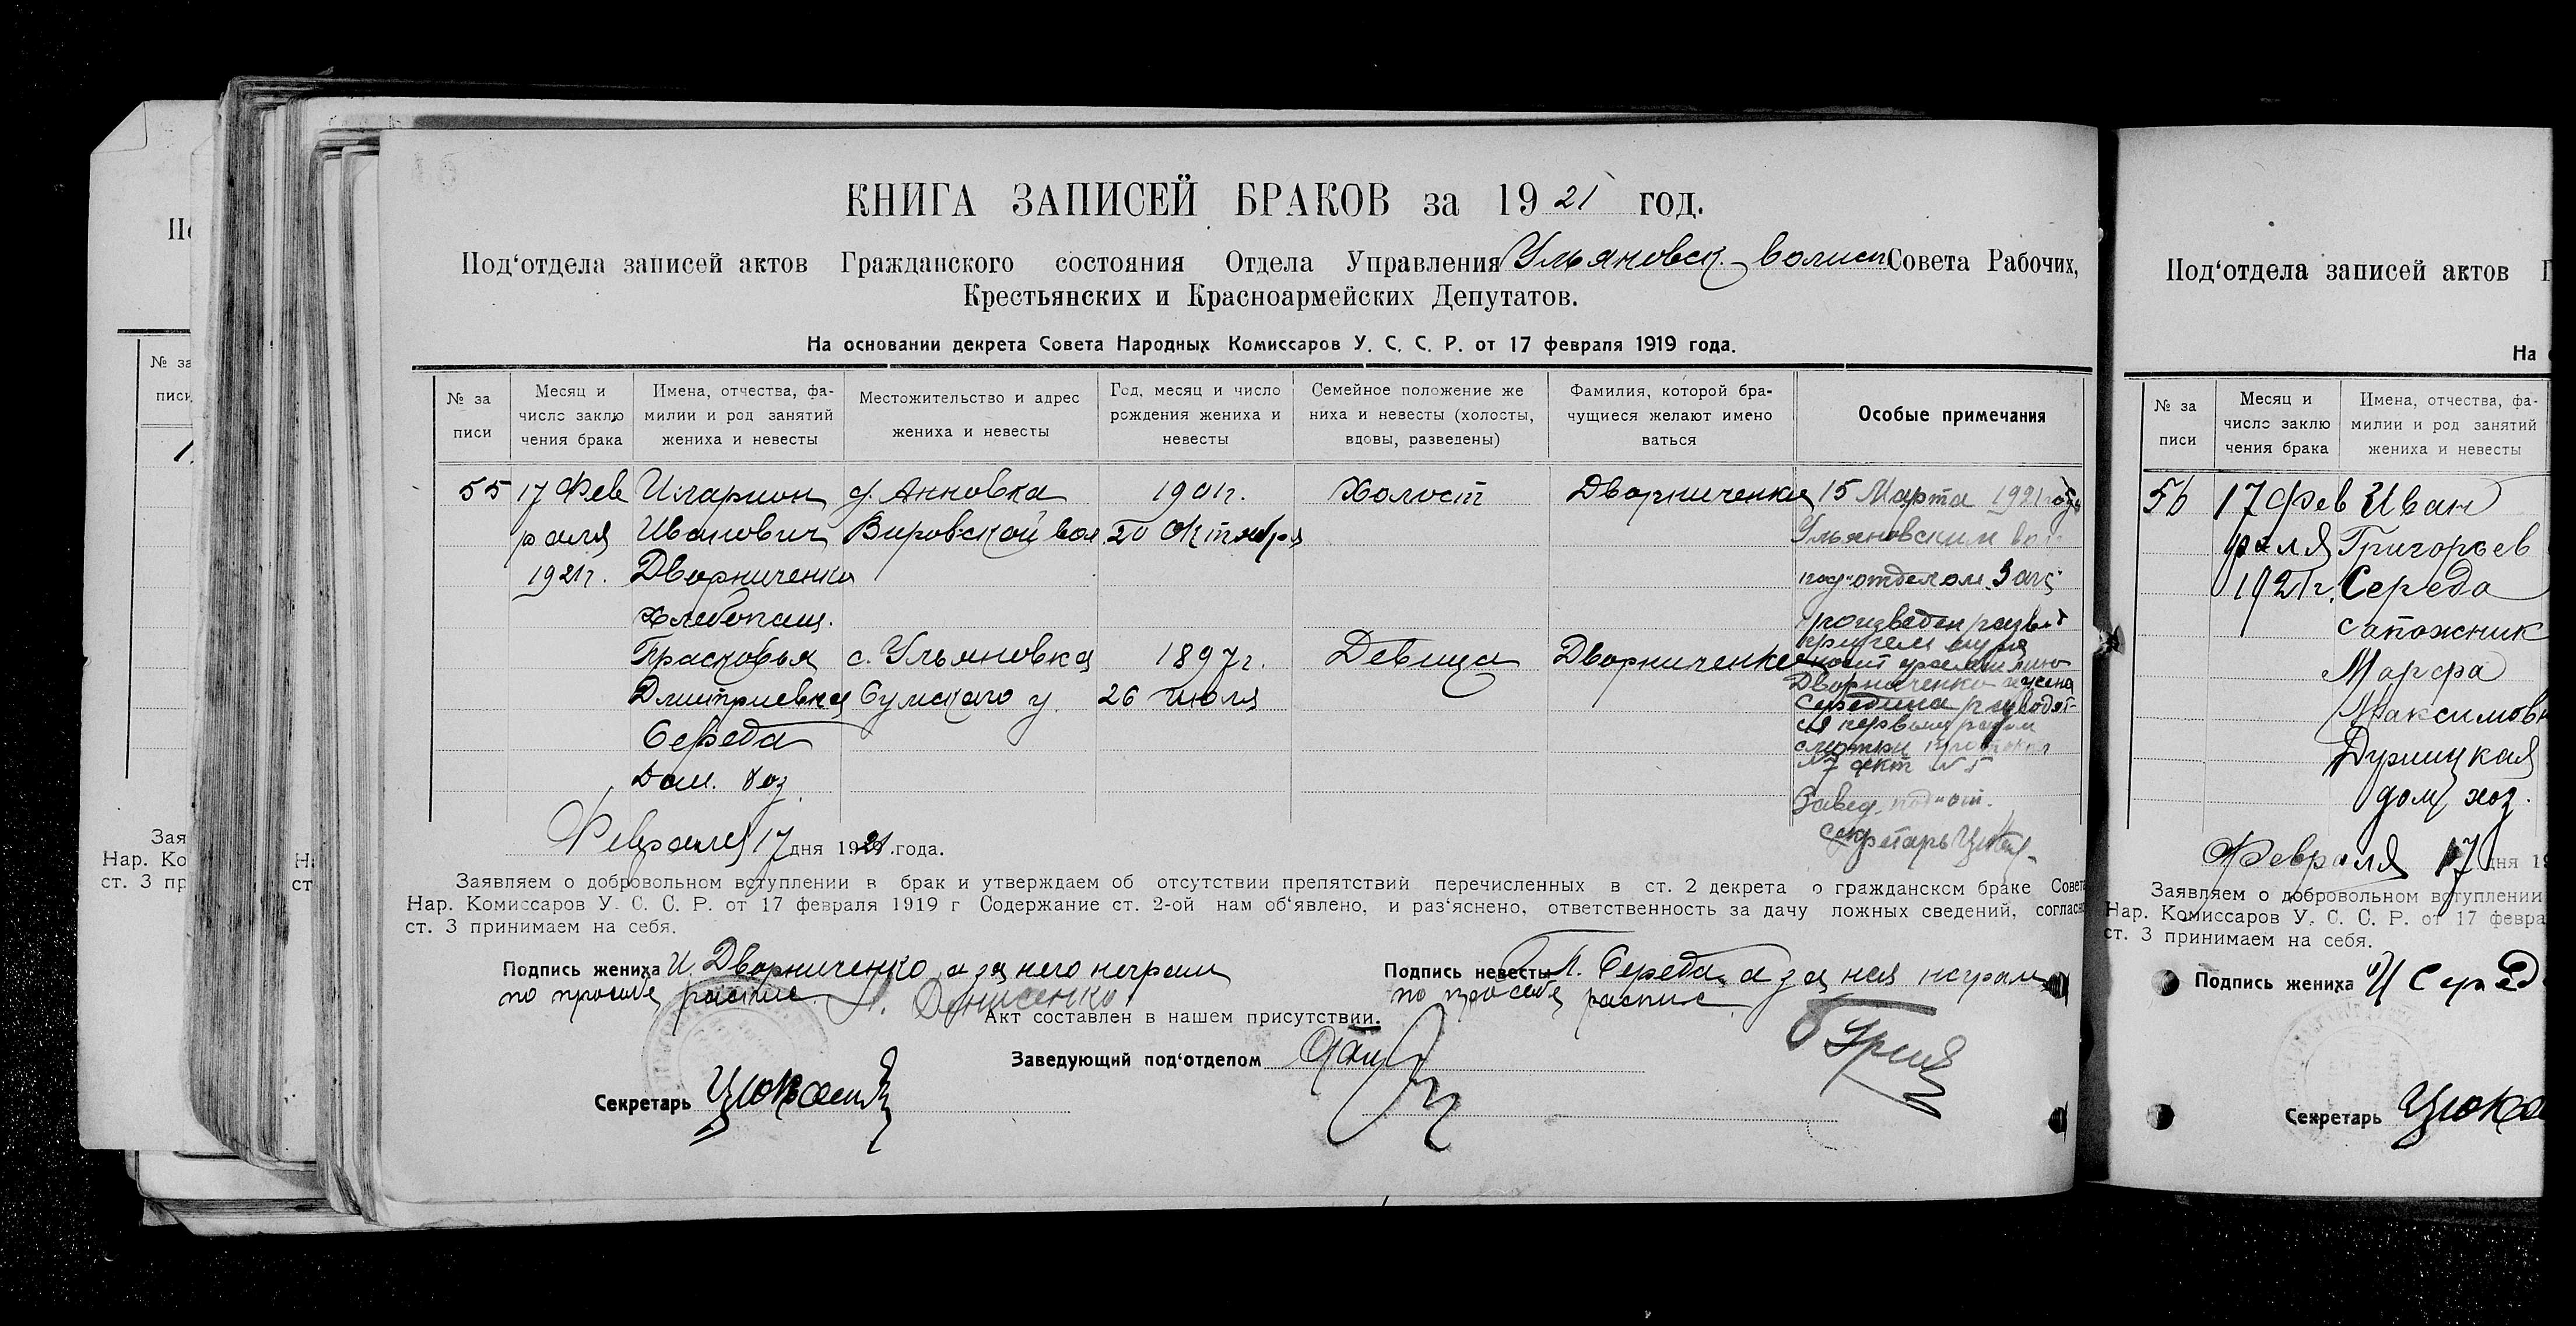 КНИГА ЗАПИСЕЙ БРАКОВ за 1921 год.
Под‘отдела записей актов Гражданского состояния Отдела Управления Ульяновск. волисп Совета Рабочих,
Крестьянских и Красноармейских Депутатов.
На основании декрета Совета Народных Комиссаров У. С. С. Р. от 17 февраля 1919 года.
№ за
писи
Месяц и
число заклю
чения брака
Имена, отчества, фа-
милии и род занятий
жениха и невесты
Местожительство и адрес
жениха и невесты
Год, месяц и число
рождения жениха и
невесты
Семейное положение же
ниха и невесты (холосты,
вдовы, разведены)
Фамилия, которой бра-
чущиеся желают имено
ваться
Особые примечания
55
17 Фев
раля
1921г.
Иларион
Иванович
Дворниченко
хлебопаш.
Прасковья
Дмитриевна
Середа
Дом. хоз.
д. Анновка
Вировской вол.
с. Ульяновка
Сумскаго у.
1901г.
20 Октября
1897г.
26 июля
Холост
Девица
Дворниченко
Дворниченко
15 Марта 1921 года
Ульяновским вол
под-отделом Загс
произведен развод
причем муж
носит фамилию
Дворниченко а жена
Середина разводят-
ся первым разом
смотри протокол
Завед. подот.
Секретарь
Февраля 17 дня 1921 года.
Заявляем о добровольном вступлении в брак и утверждаем об отсутствии препятствий перечисленных в ст. 2 декрета о гражданском браке Совета
Нар. Комиссаров У. С. С. Р. от 17 февраля 1919 г Содержание ст. 2-ой нам об‘явлено, и раз‘яснено, ответственность за дачу ложных сведений, согласно
ст. 3 принимаем на себя.
Подпись жениха И. Дворниченко, а за него неграм
по прозьбе распис. Денисенко
Подпись невесты П. Середа, а за нея неграм
по прозьбе распис.
Акт составлен в нашем присутствии.
Заведующий под‘отделом
Секретарь
Под‘отдела записей актов Г
На
№ за
писи
Месяц и
число заклю
чения брака
Имена, отчества, фа-
милии и род занятий
жениха и невесты
56
17 Фев
раля
1921г.
Иван
Григорьев
Середа
сапожник
Марфа
Максимовн
Дурицкая
дом. хоз.
Февраля 17 дня 19
Заявляем о добровольном вступлении
Нар. Комиссаров У. С. С. Р. от 17 февра
ст. 3 принимаем на себя.
Подпись жениха И Серед
Секретарь
№ за
писи
Зая
Нар. Ко
ст. 3 пр